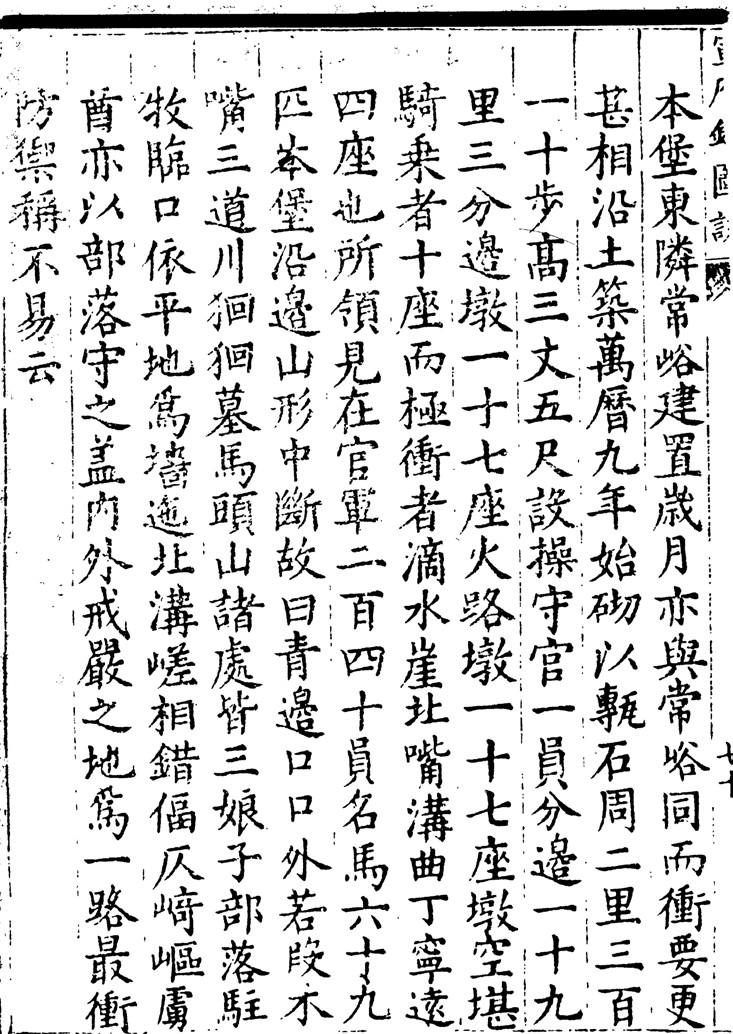 宣府鎮圖說
七十
本堡東隣常峪建置歲月亦與常峪同而衝要更
甚相沿土築萬曆九年始砌以甎石周二里三百
一十步高三丈五尺設操守官一員分邊一十九
里三分邊墩一十七座火路墩一十七座墩空堪
騎乗者十座而極衝者滴水崖北嘴溝曲丁寧遠
四座也所領見在官軍二百四十員名馬六十九
匹本堡沿邊山形中斷故曰青邊口口外若段木
嘴三道川狪狪墓馬頭山諸處皆三娘子部落駐
牧臨口依平地為墻迤北溝嵯相錯偪仄崎嶇虜
酋亦以部落守之盖内外戒嚴之地為一路最衝
防禦稱不易云